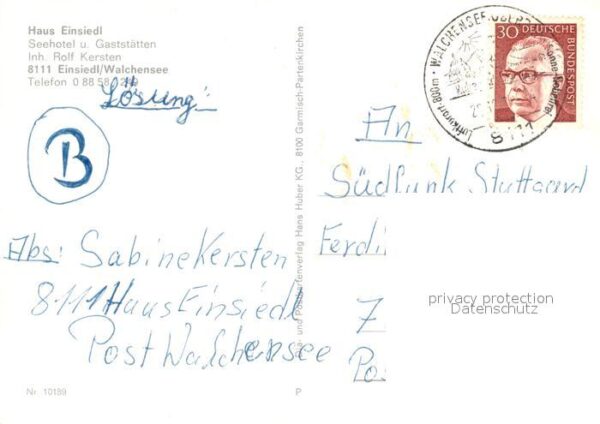 Haus Einsiedl
Seehotel u. Gaststätten
Inh. Rolf Kersten
8111 Einsiedl/Walchensee
Telefon 0 88 58
Lösung:
B
Abs: Sabine Kersten
8111 Haus Einsiedl
Post Walchensee
Nr. 10189
Postkartenverlag Hans Huber KG., 8100 Garmisch-Partenkirchen
P
WALCHENSEE
Luftkurort 800m
8111
30 DEUTSCHE
BUNDESPOST
An
Südfunk Stuttgard
Ferdi
Z
Po
privacy protection
Datenschutz